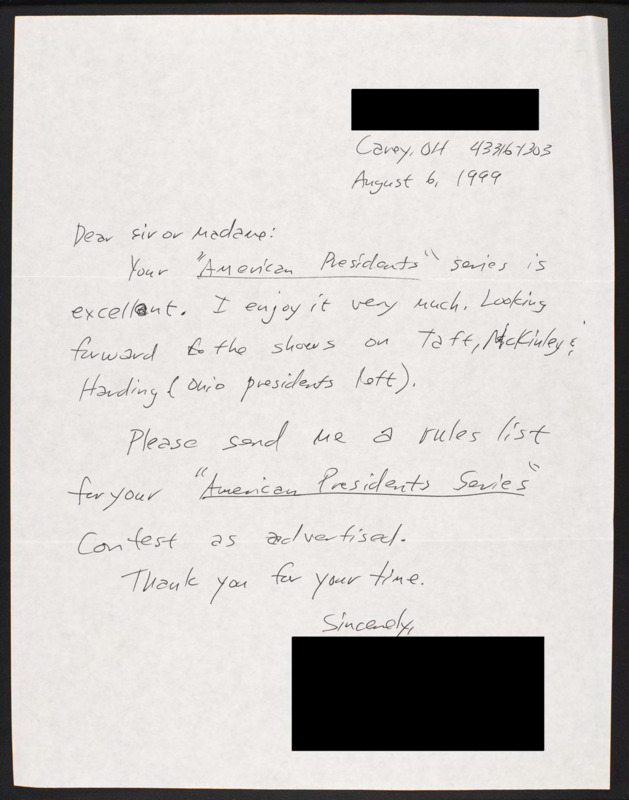 Carey, OH 43316-1303
August 6, 1999
Dear sir or Madame:
Your "American Presidents" series is
excellent. I enjoy it very much. Looking
forward to the shows on Taft, McKinley &
Harding (Ohio presidents left).
Please send me a rules list
for your "American Presidents Series"
Contest as advertised.
Thank you for your time.
Sincerely,